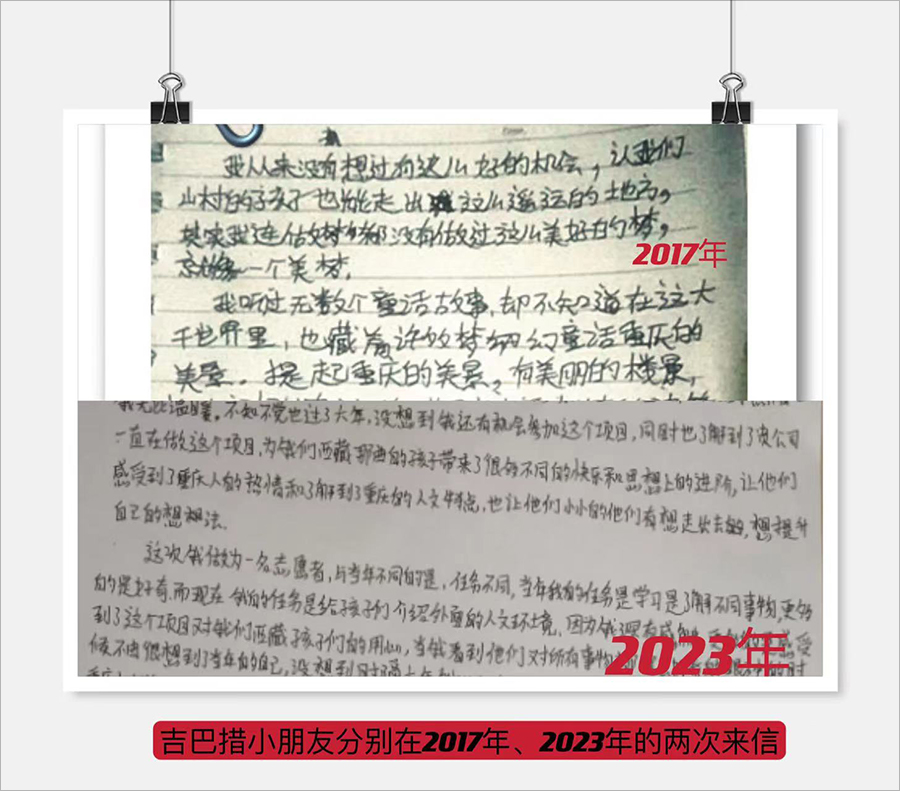 我从来没有想过有这么好的机会，让我们
山村的孩子也能走出这么遥远的土地方，
其实我连做梦都没有做过这么美好的梦，
一个美梦.
我听过无数个童话故事，却不知道在这大
千世界里，也藏着许多梦幻童话重庆的
美景。提起重庆的美景，有美丽的楼景，
2017年
我无比温暖。不知不觉也过了六年，没想到我还有机会参加这个项目，同时也了解到了贵公司
一直在做这个项目，为我们西藏那曲的孩子带来了很多不同的快乐和思想上的进阶，让他们
感受到了重庆人的热情和了解到了重庆的人文特点，也让他们小小的他们有想走出去的，想提升
自己的想想法.
这次我做为一名志愿者，与当年不同的是，任务不同，当年我的任务是学习是了解不同事物，更多
的是好奇，而现在我的任务是给孩子们介绍外面的人文环境，因为我深有感
到了这个项目对我们西藏孩子们的用心，当我看到他们对所有事物
候不由很想到了当年的自己，没想到时隔六年
2023年
吉巴措小朋友分别在2017年、2023年的两次来信